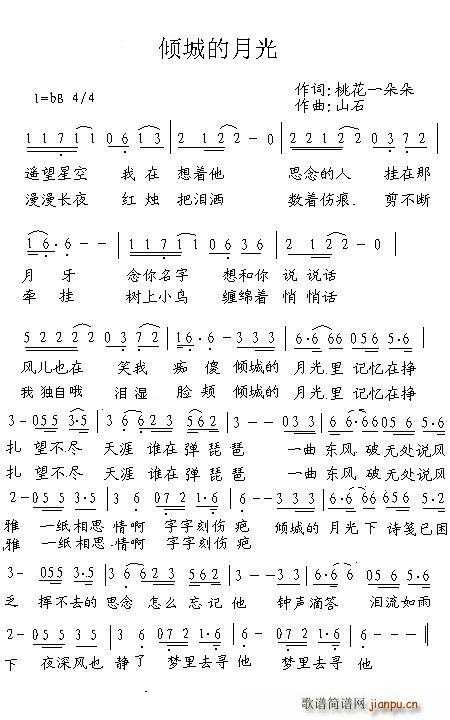 倾城的月光
1=bB 4/4
作词:桃花一朵朵
作曲:山石
1 1 7 1 1 0 6 1 3 | 2 1 2 2 - 0 | 2 2 1 2 1 0 7 6 3 |
遥望星空 我在 想着他 思念的人 挂在那
漫漫长夜 红烛 把泪洒 数着伤痕. 剪不断
1 6 · 6 - - | 1 1 7 1 1 0 6 3 6 | 2 1 2 2 - 0 |
月牙 念你名字 想和你 说说话
牵挂 树上小鸟 缠绵着 悄悄话
5 2 2 2 2 0 7 1 3 | 1 6 · 6 - 3 3 3 | 6 · 6 6 6 0 5 6 5 · 6 |
风儿也在 笑我 痴傻 倾城的 月光.里 记忆在挣
我独自哦 泪湿 脸颊 倾城的 月光.里 记忆在挣
3 - 0 5 5 3 · 5 | 3 6 6 2 3 5 2 3 | 3 - 3 3 3 | 6 · 6 6 6 0 5 6 5 · 6 |
扎 望不尽 天涯 谁在弹琵琶 一曲 东风.破无处说风
扎 望不尽 天涯 谁在弹琵琶 一曲 东风.破无处说风
2 - 0 5 5 3 · 5 | 3 6 0 7 2 1 · 6 | 6 - 3 3 3 | 6 · 6 6 6 0 5 6 5 · 6 |
雅 一纸相思 情啊 字字刻伤疤 倾城的 月光下 诗笺已困
雅 一纸相思.情啊 字字刻伤疤
3 - 0 5 5 3 · 5 | 3 6 2 3 5 6 2 | 3 - 3 3 3 | 6 · 6 6 6 · 1 6 5 |
乏 挥不去的思念 怎么忘记他 钟声滴答 泪流如雨
2 - 0 5 5 3 · 5 | 3 6 0 7 2 1 · 6 | 6 - 0 7 2 1 · 6 | 6 - - - ||
下 夜深风也 静了 梦里去寻他 梦里去寻 他
歌谱简谱网
jianpu.cn